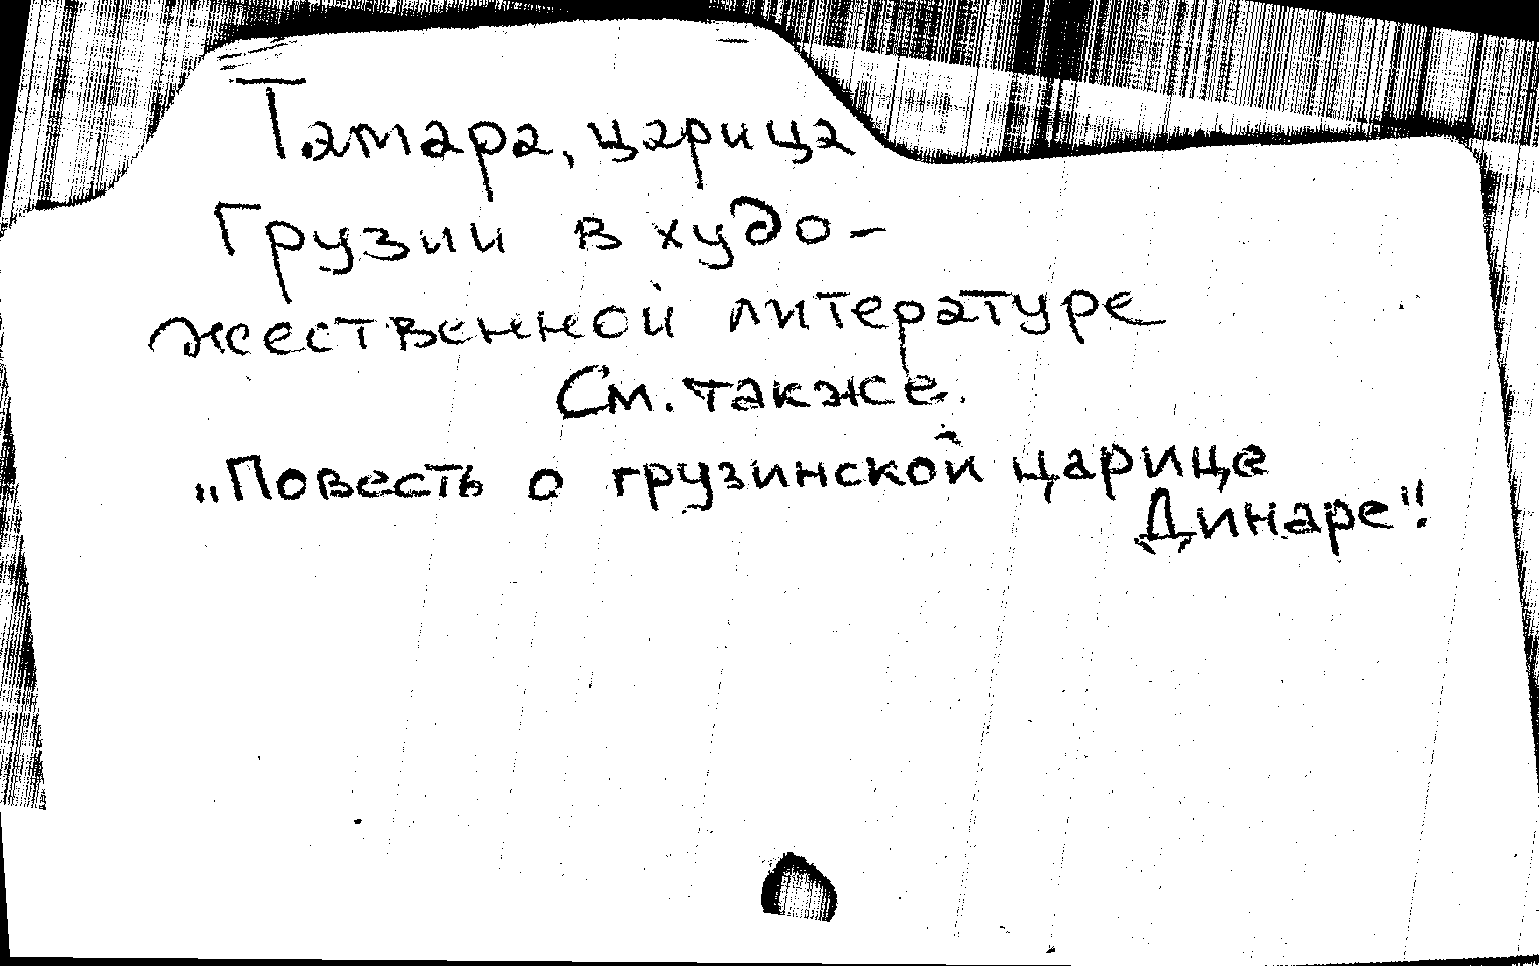 Тамара, царица
Грузии в худо-
жественной литературе
См. также.
„Повесть о грузинской царице
Динаре".